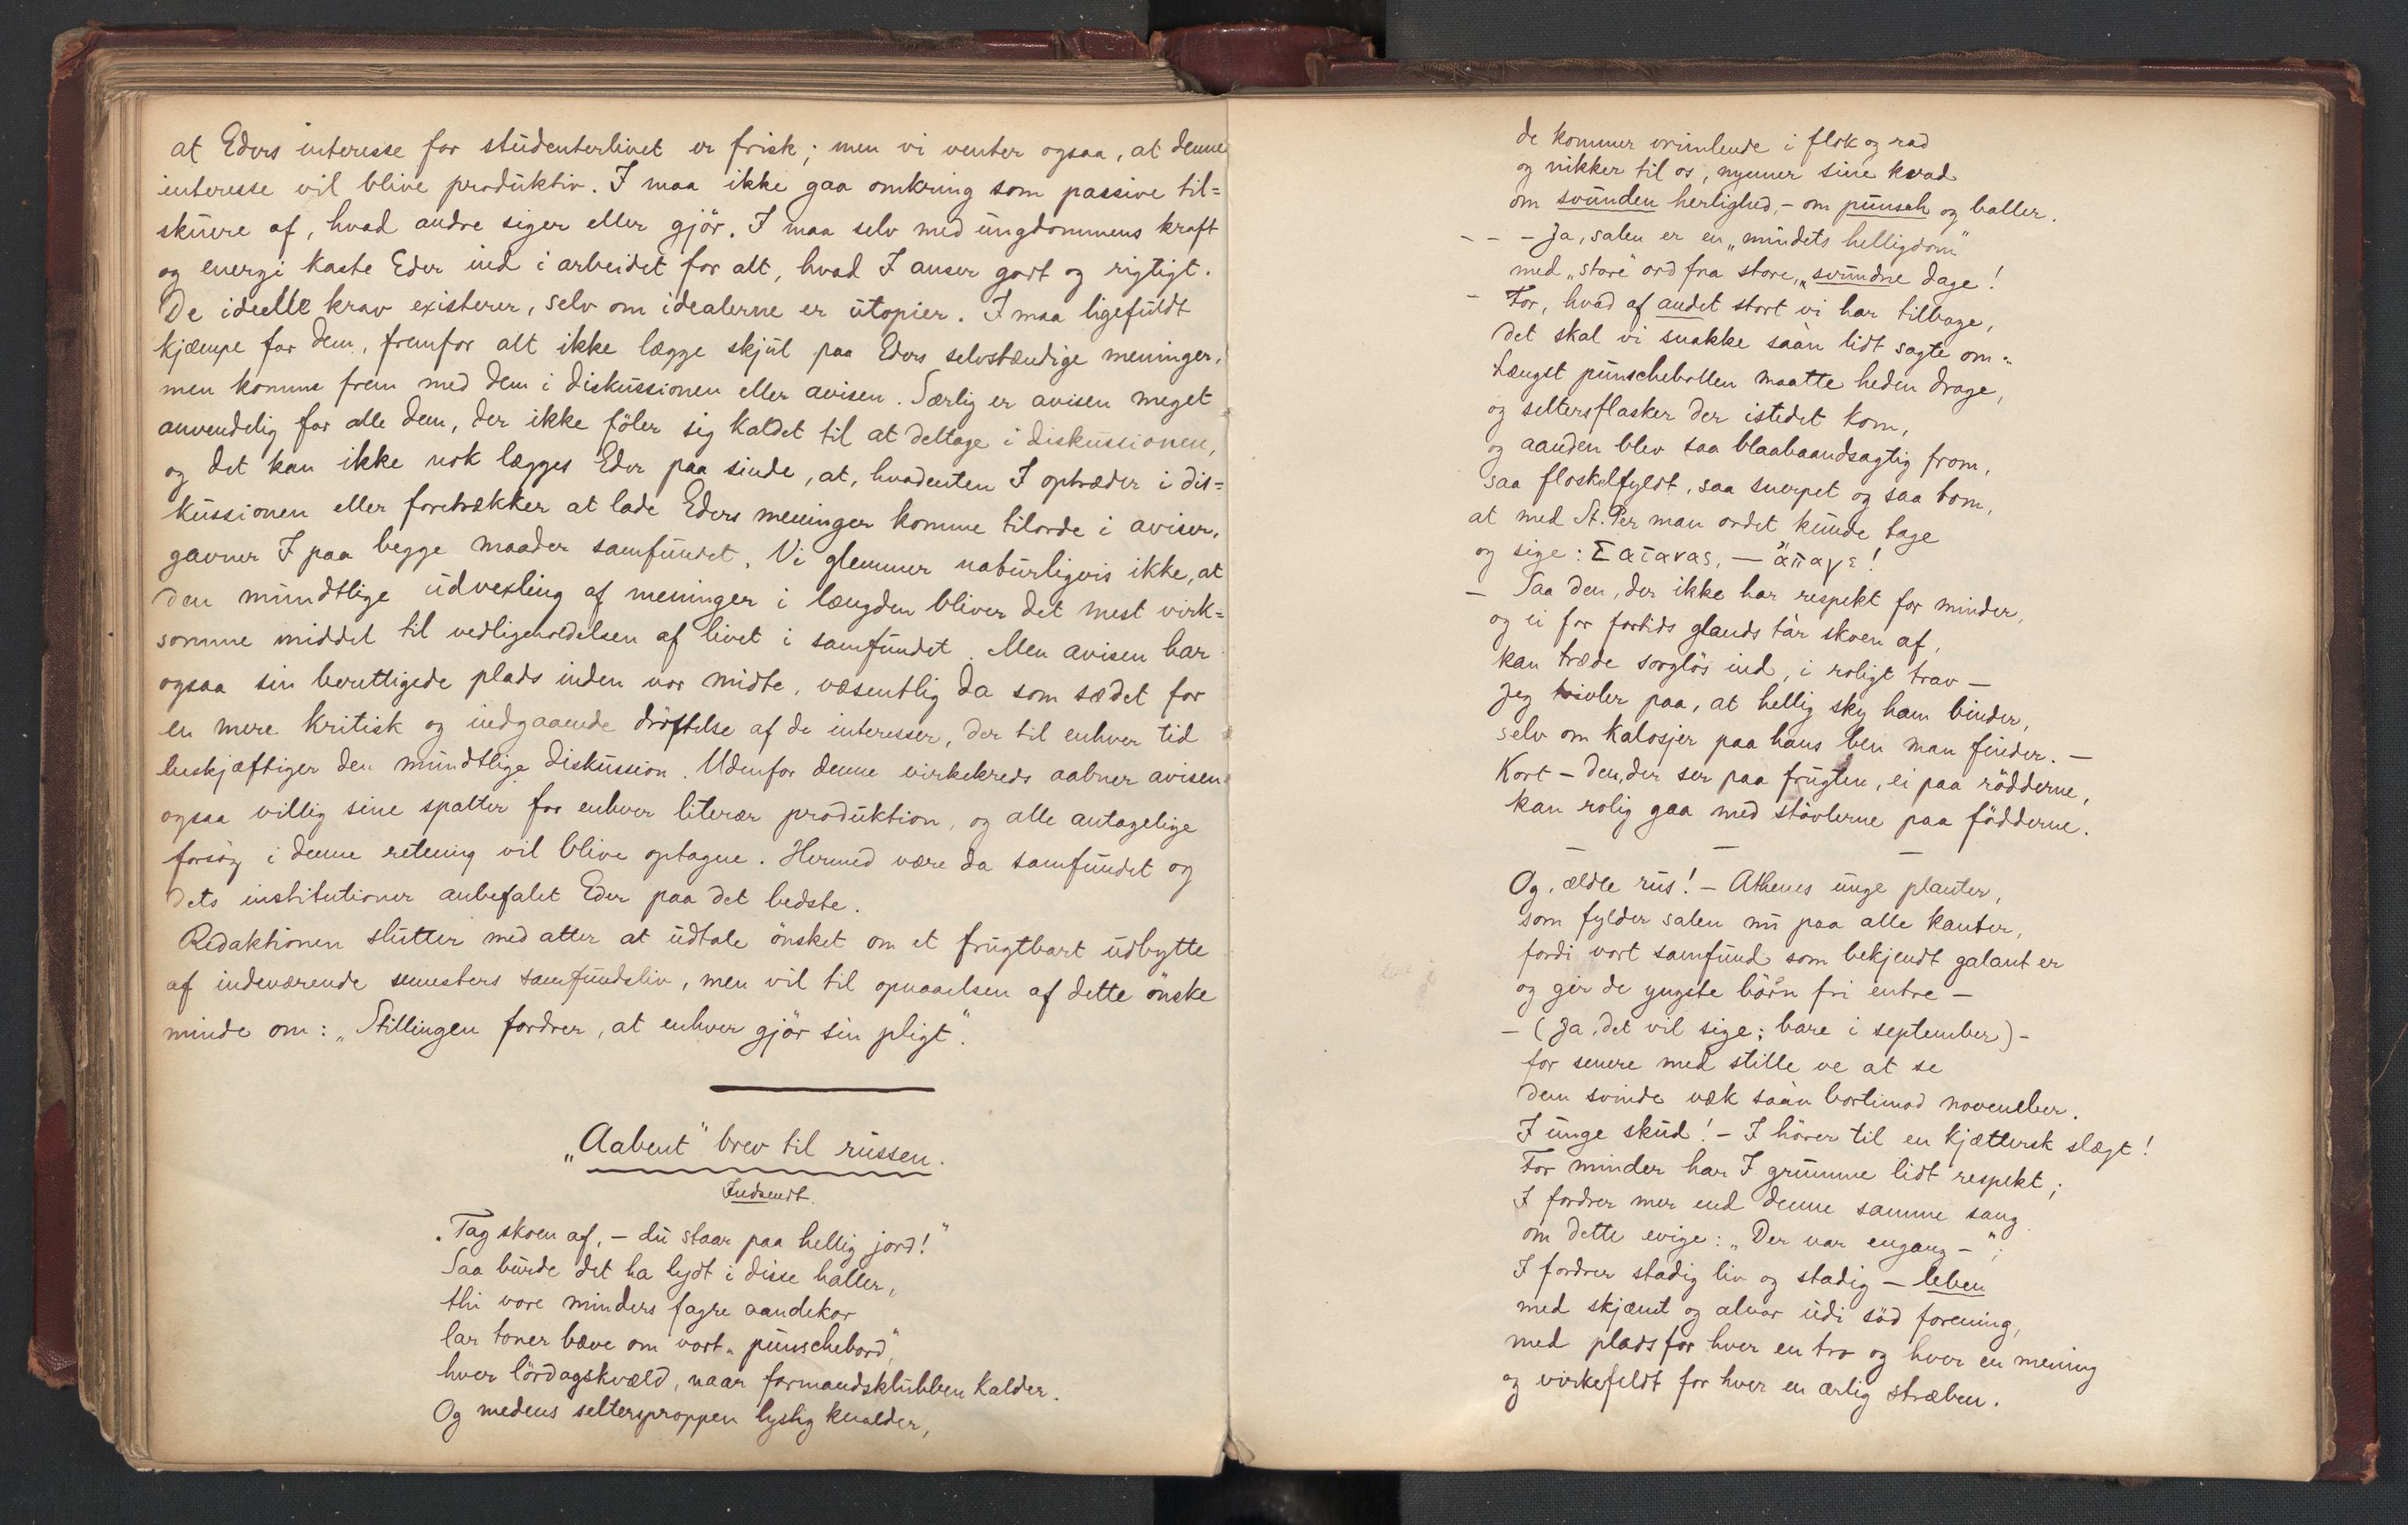 at Eders interesse for studenterlivet er frisk; men vi venter ogsaa, at denne
interesse vil blive produktiv. I maa ikke gaa omkring som passive til=
skuere af, hvad andre siger eller gjör. I maa selv med ungdommens kraft
og energi kaste Eder ind i arbeidet for alt, hvad I anser godt og rigtigt.
De ideelle krav existerer, selv om idealerne er utopier. I maa ligefuldt
kjæmpe for dem, fremfor alt ikke lægge skjul paa Eders selvstændige meninger,
men komme frem med dem i diskussionen eller avisen. Særlig er avisen meget
anvendelig for alle dem, der ikke föler sig kaldet til at deltage i diskussionen,
og det kan ikke nok lægges Eder paa sinde, at, hvadenten I optræder i dis=
kussionen eller foretrækker at lade Eders meninger komme tilorde i aviser,
gavner I paa begge maader samfundet. Vi glemmer naturligvis ikke, at
den mundtlige udvexling af meninger i længden bliver det mest virk=
somme middel til vedligeholdelsen af livet i samfundet. Men avisen har
ogsaa sin berettigede plads inden vor midte, væsentlig da som sædet for
en mere kritisk og indgaaende dröftelse af de interesser, der til enhver tid
beskjæftiger den mundtlige diskussion. Udenfor denne virkekreds aabner avisen
ogsaa villig sine spalter for enhver literær produktion, og alle antagelige
forsög i denne retning vil blive optagne. Hermed være da samfundet og
dets institutioner anbefalet Eder paa det bedste.
Redaktionen slutter med atter at udtale önsket om et frugtbart udbytte
af indeværende semesters samfundsliv, men vil til opnaaelsen af dette önske
minde om: „Stillingen fordrer, at enhver gjör sin pligt".
„Aabent" brev til russen.
Indsendt.
„Tag skoen af, – du staar paa hellig jord!"
Saa burde det ha lydt i disse haller,
thi vore minders fagre aandekor
lar toner bæve om vort „punschebord",
hver lördagskvæld, naar formandsklubben kalder.
Og medens seltersproppen lystig knalder,
de kommer vrimlende i flok og rad
og nikker til os, nynner sine kvad
om svunden herlighed, – om punsch og baller.
– – – Ja, salen er en „mindets helligdom"
med „store" ord fra store, „svundne dage!
– For, hvad af andet stort vi har tilbage,
det skal vi snakke saàn lidt sagte om:
Længst punschebollen maatte heden drage,
og seltersflasker der istedet kom,
og aanden blev saa blaabaandsagtig from,
saa floskelfyldt, saa snerpet og saa tom,
at med St. Per man ordet kunde tage
og sige: Σατανας, – ἄπαγε!
– Saa den, der ikke har respekt for minder,
og ei for fortids glands tàr skoen af,
kan træde sorglös ind, i roligt trav –
Jeg tvivler paa, at hellig sky ham binder,
selv om kalosjer paa hans ben man finder. –
Kort – den, der ser paa frugten, ei paa rödderne,
kan rolig gaa med stövlerne paa födderne.
– – –
Og, ædle rus! – Athenes unge planter,
som fylder salen nu paa alle kanter,
fordi vort samfund som bekjendt galant er
og gir de yngste börn fri entre –
– (Ja, det vil sige: bare i september) –
for senere med stille ve at se
dem svinde væk saàn bortimod november.
I unge skud! – I hörer til en kjættersk slægt!
For minder har I grumme lidt respekt;
I fordrer mer end denne samme sang
om dette evige: „Der var engang –";
I fordrer stadig liv og stadig – leben
med skjæmt og alvor udi söd forening,
med plads for hver en tro og hver en mening
og virkefeldt for hver en ærlig stræben.